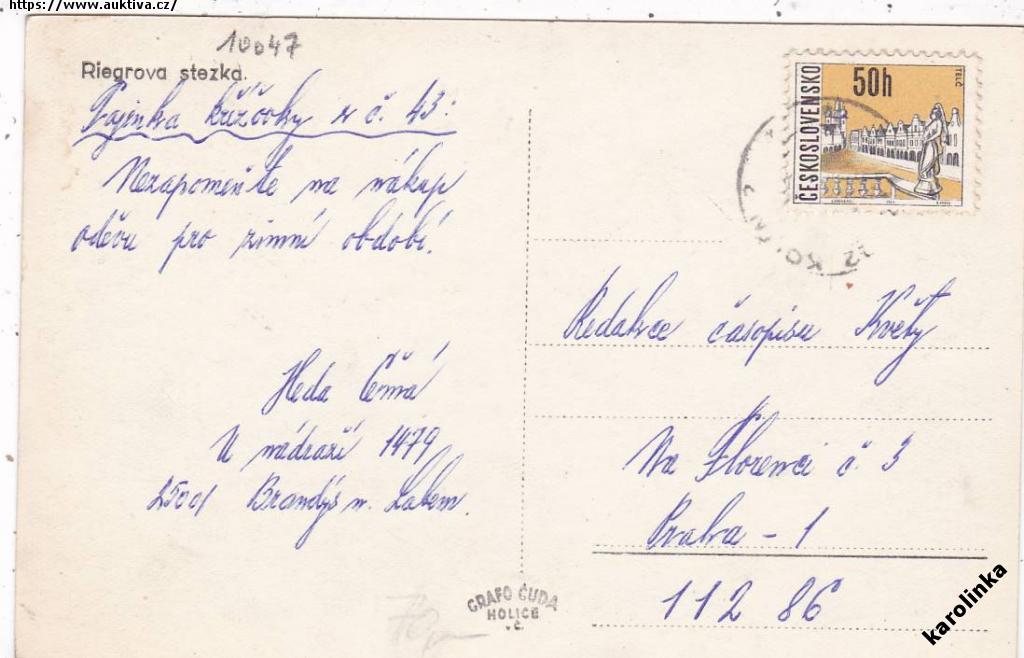 https://www.auktiva.cz/
10047
Riegrova stezka.
Tajenka křížovky z č. 43:
Nezapomeňte na nákup
oděvu pro zimní období.
Heda Černá
U nádraží 1479
25001 Brandýs n. Labem.
ČESKOSLOVENSKO
50h
TELČ
Redakce časopisu Květy
Na Florenci č. 3
Praha - 1
112 86
GRAFO ČUDA
HOLICE
v Č.
70,-
karolinka